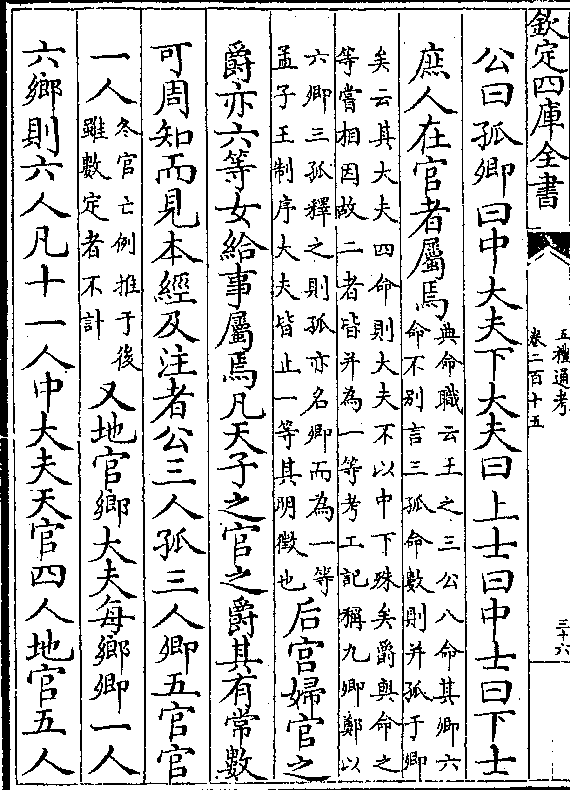 欽定四庫全書
五禮通考
卷二百十五
三十六
公曰孤卿曰中大夫下大夫曰上士曰中士曰下士
庶人在官者屬焉
典命職云王之三公八命其卿六
命不別言三孤命數則并孤于卿
矣云其大夫四命則大夫不以中下殊矣爵與命之
等嘗相因故二者皆并為一等考工記稱九卿鄭以
六卿三孤釋之則孤亦名卿而為一等
孟子王制序大夫皆止一等其明徵也
后宮婦官之
爵亦六等女給事屬焉凡天子之官之爵其有常數
可周知而見本經及注者公三人孤三人卿五官官
一人
冬官亡例推于後
雖數定者不計
又地官鄉大夫每鄉卿一人
六鄉則六人凡十一人中大夫天官四人地官五人